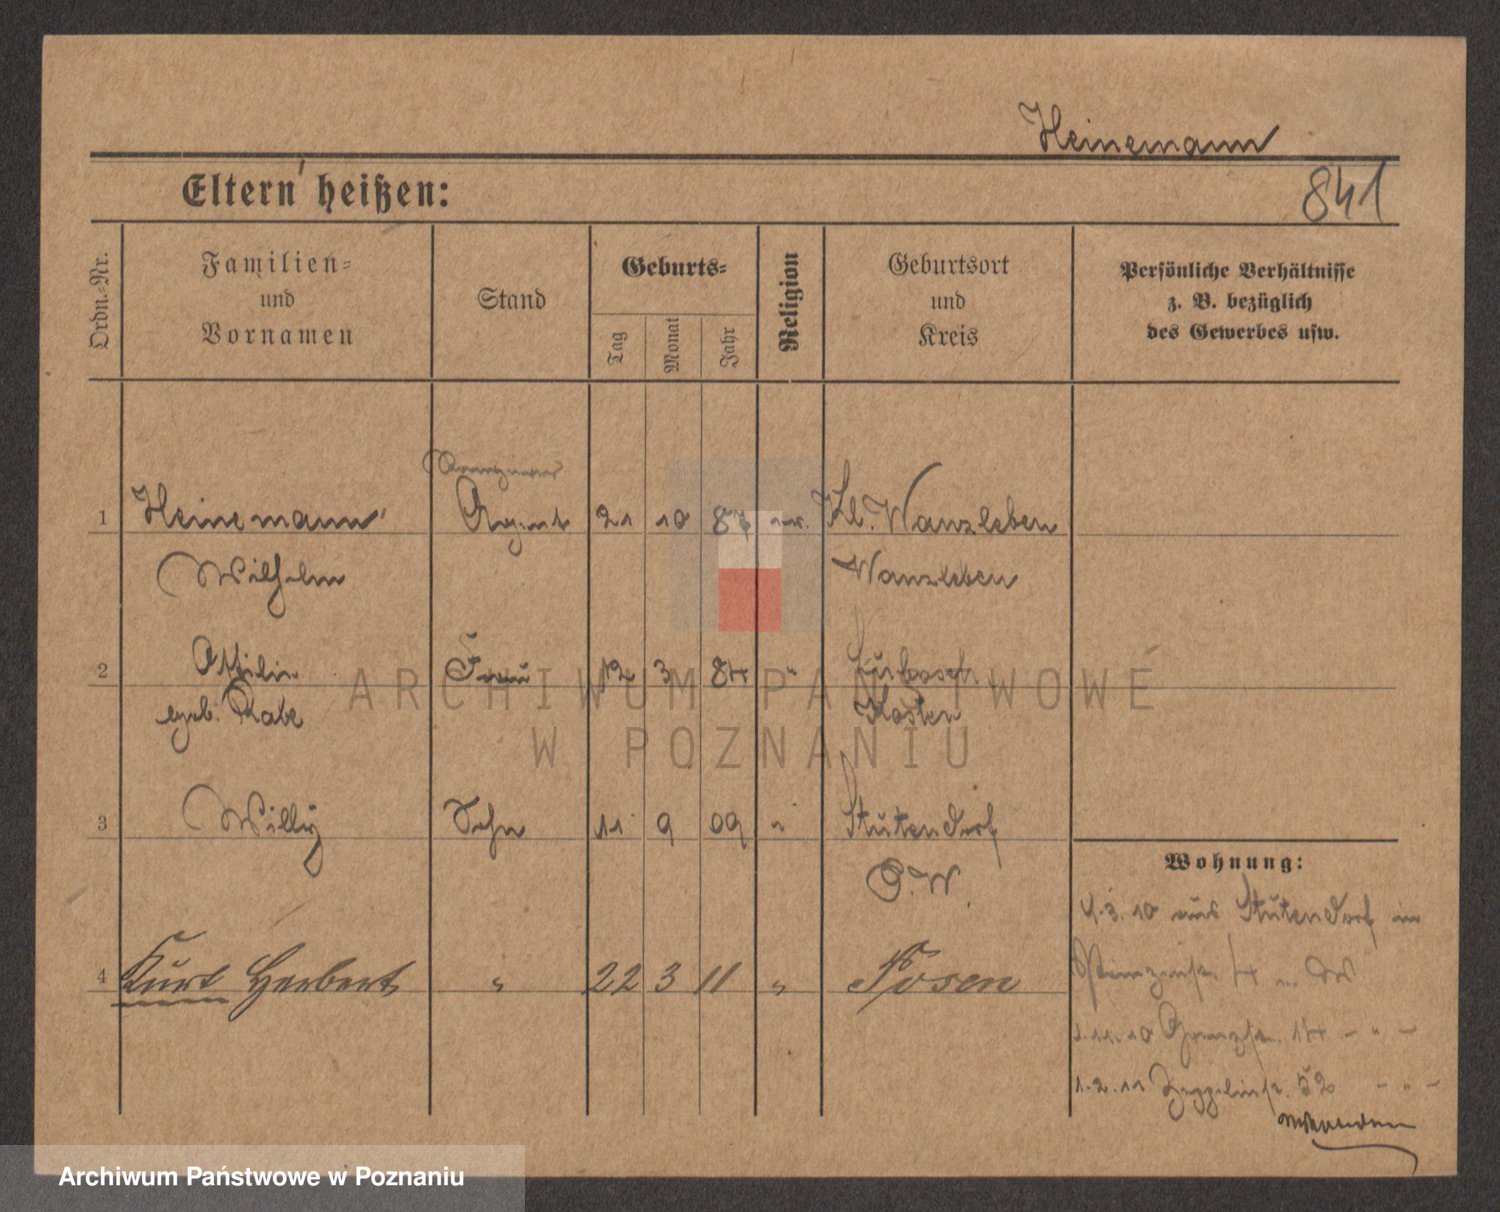 Heinemann
841
Eltern heißen:
Ordn.-Nr.
Familien-
und
Vornamen
Stand
Geburts-
Tag
Monat
Jahr
Religion
Geburtsort
und
Kreis
Persönliche Verhältnisse
z. B. bezüglich
des Gewerbes usw.
1 Heinemann Agent 21 10 87 ev. Kl. Wanzleben
Wilhelm Wanzleben
2 Ottilie Frau 12 3 84 "
geb. Rabe Kosten
3 Willÿ Sohn 11 9 09 " Stutendorf
P. W.
Wohnung:
1.3.10 aus Stutendorf in
4 Kurt Herbert " 22 3 11 " Posen
1.11.10 Grenzstr. 14 - " -
1.2.11 Zeppelinstr. 52 - " -
ARCHIWUM PAŃSTWOWE
W POZNANIU
Archiwum Państwowe w Poznaniu